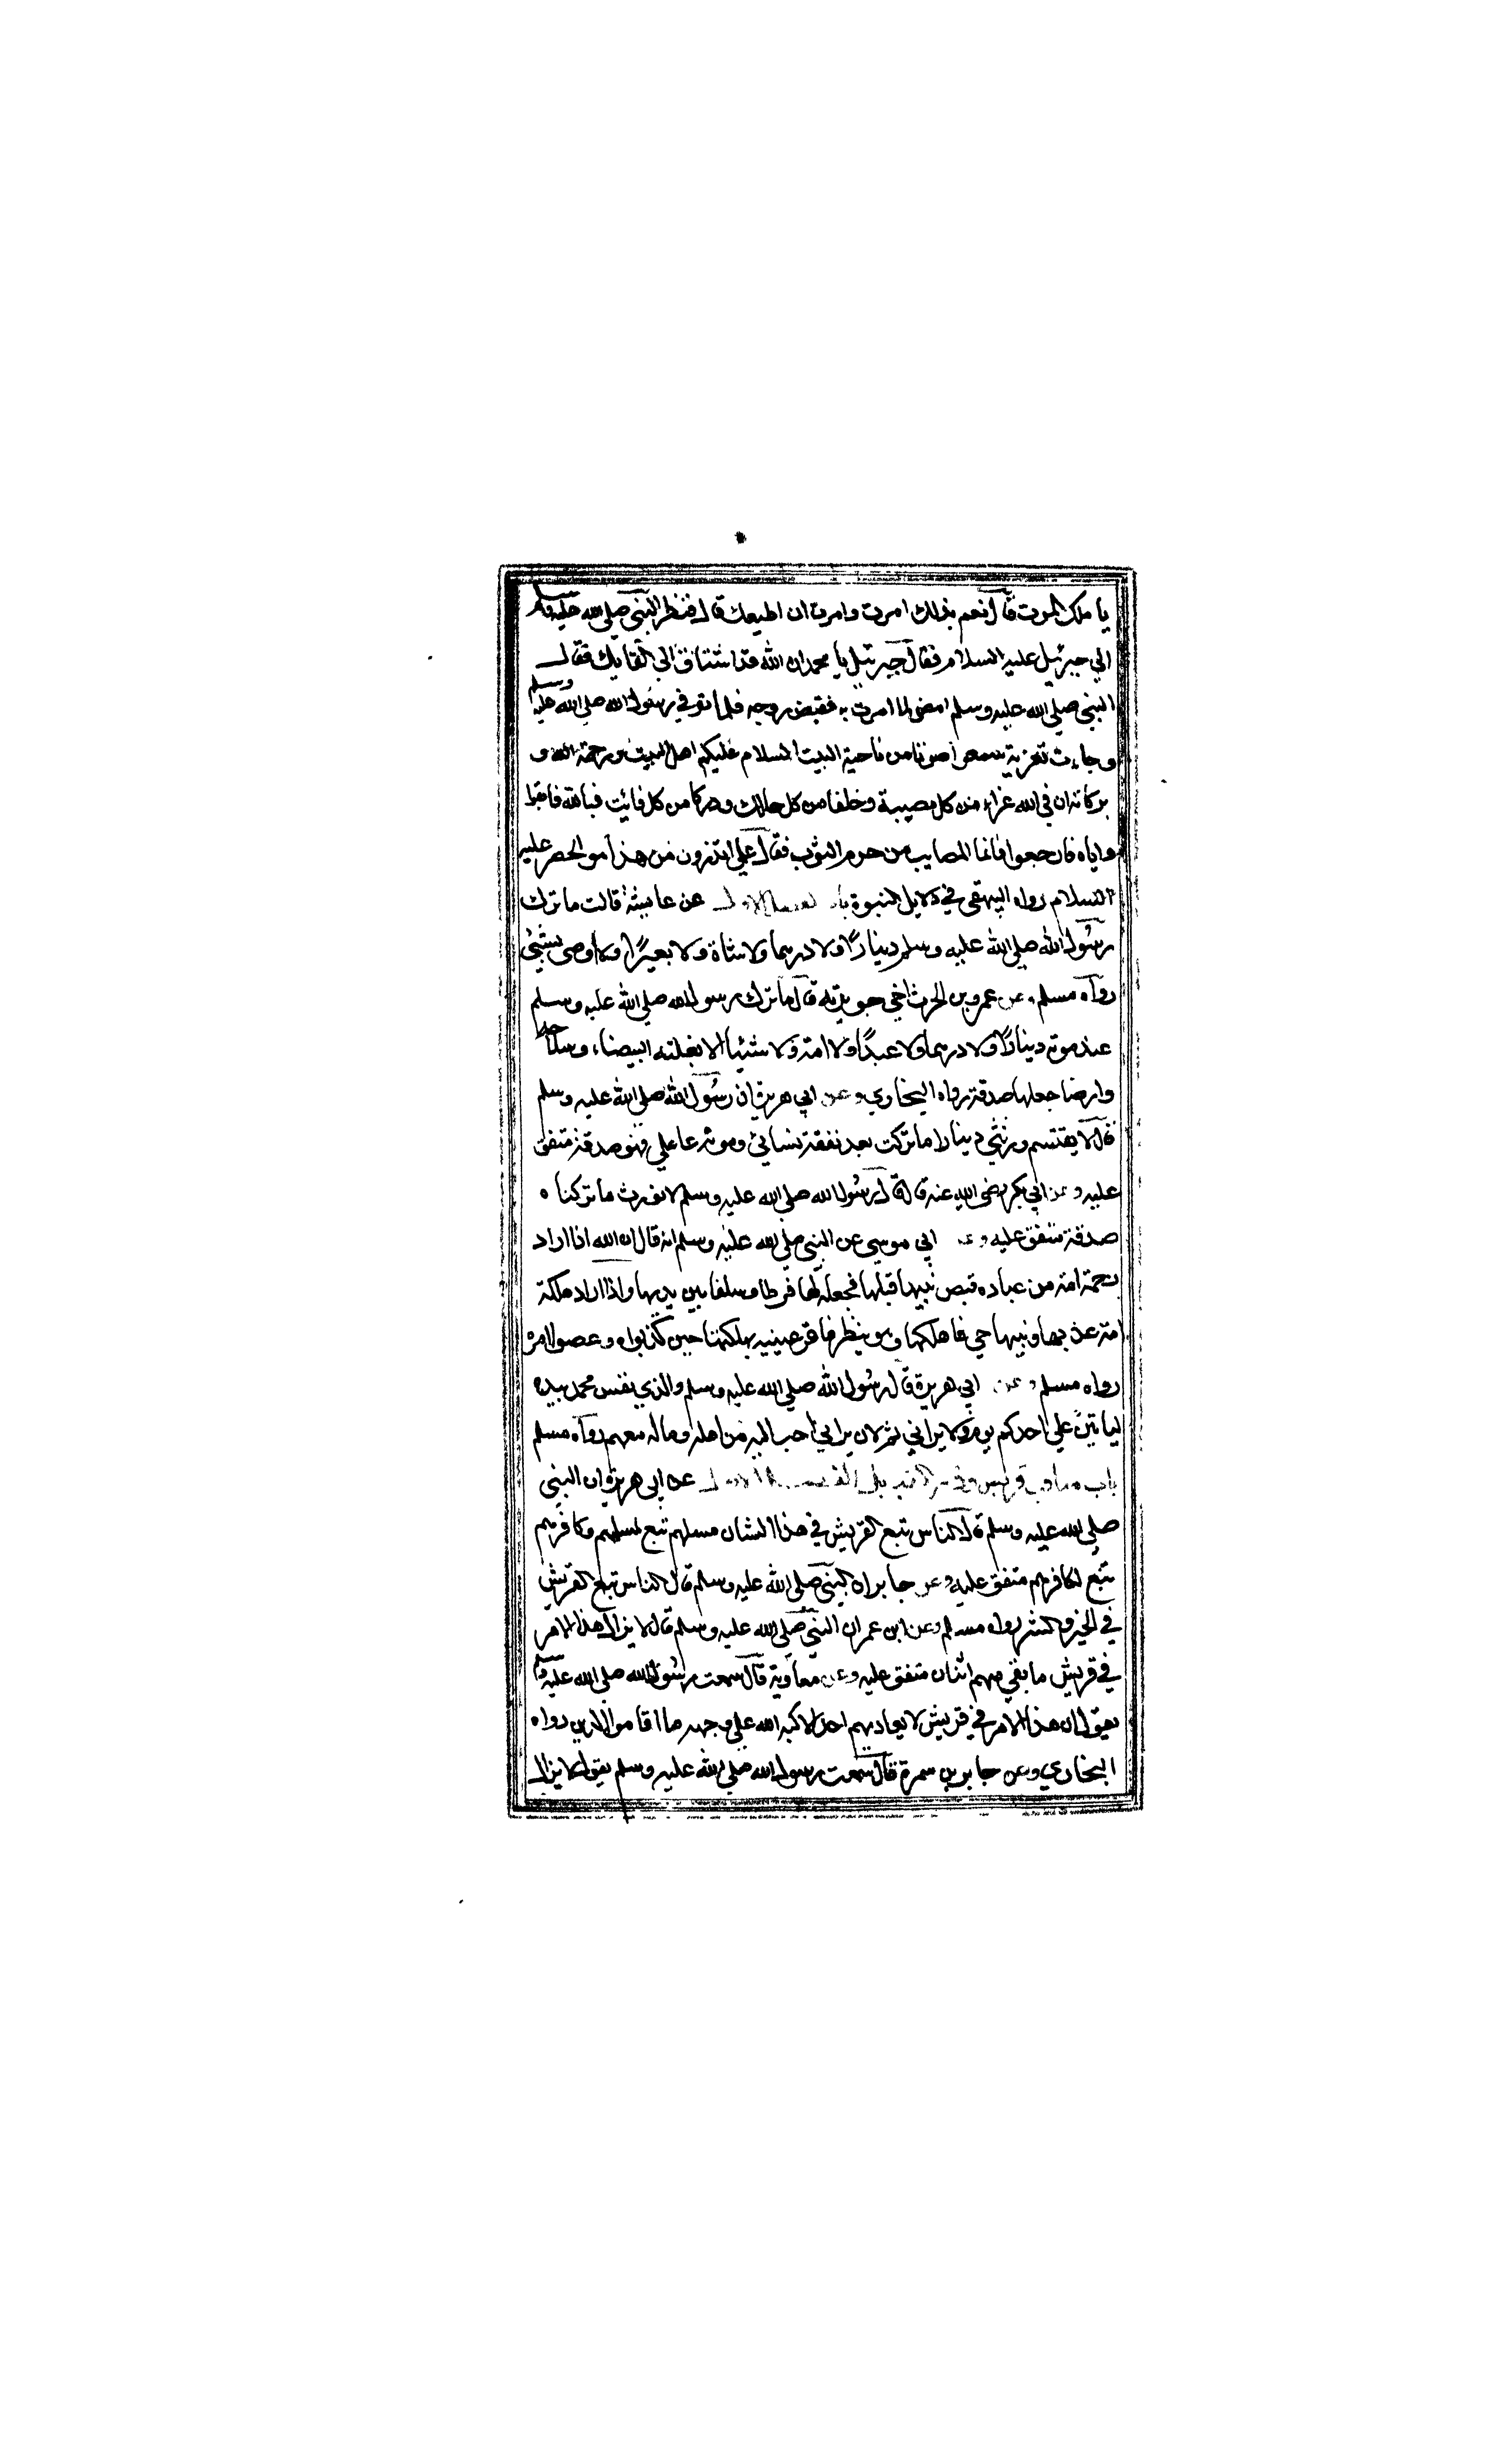 يا ملك الموت قال نعم بذلك امرت وامرت ان اطيعك قال فنظر النبي صلى الله عليه وسلم
الي جبرئيل عليه السلام فقال جبرئيل يا محمد ان الله قد اشتاق الى لقايك فقال
النبي صلى الله عليه وسلم امض لما امرت به فقبض روحه فلما توفي رسول الله صلى الله عليه وسلم
وجاءت تعزية سمعوا صوتا من ناحية البيت السلام عليكم اهل البيت ورحمة الله و
بركاته ان في الله عزاء من كل مصيبة وخلفا من كل هالك ودركا من كل فائت فبالله فاتقوا
واياه فارجعوا فانما المصايب من حرم الثوب فقال علي اتدرون من هذا هو الخضر عليه
السلام رواه البيهقي في دلايل النبوة باب الفصل الاول عن عايشة قالت ما ترك
رسول الله صلي الله عليه وسلم دينارًا ولا درهما ولا شاة ولا بعيرًا ولا اوصى بشيئ
رواه مسلم، عن عمرو بن الحرث اخي جويرية قال ما ترك رسول الله صلي الله عليه وسلم
عند موته دينارًا ولا درهما ولا عبدًا ولا امة ولا شيئا الا بغلته البيضاء، وسلاحه
وارضا جعلها صدقة رواه البخاري وعن ابي هريرة ان رسول الله صلى الله عليه وسلم
قال لا يقتسم ورثتي دينارا ما تركت بعد نفقة نسائي ومونة عاملي فهو صدقة متفق
عليه وعن ابي بكر رضى الله عنه قال قال رسول الله صلي الله عليه وسلم لا نورث ما تركناه
صدقة متفق عليه وعن ابي موسي عن النبي صلي الله عليه وسلم انه قال ان الله اذا اراد
رحمة امة من عباده قبض نبيها قبلها فجعله لها فرطا وسلفا بين يديها واذا اراد هلكة
امة عذبها ونبيها حي فاهلكها وهو ينظر فاقر عينيه بهلكتها حين كذبواه وعصوا امره
رواه مسلم وعن ابي هريرة قال رسول الله صلي الله عليه وسلم والذي نفس محمد بيده
لياتين علي احدكم يوم ولا يراني ثم لان يراني احب اليه من اهله وماله معهم رواه مسلم
باب مناقب قريش وذكر القبايل الفصل الاول عن ابي هريرة ان النبي
صلي الله عليه وسلم قال الناس تبع لقريش في هذا الشان مسلمهم تبع لمسلمهم وكافرهم
تبع لكافرهم متفق عليه وعن جابر ان النبي صلى الله عليه وسلم قال الناس تبع لقريش
في الخير والشر رواه مسلم وعن ابن عمر ان النبي صلي الله عليه وسلم قال لا يزال هذا الامر
في قريش ما بقي منهم اثنان متفق عليه وعن معاوية قال سمعت رسول الله صلي الله عليه وسلم
يقول ان هذا الامر في قريش لا يعاديهم احد الا كبه الله علي وجهه ما اقاموا الدين رواه
البخاري وعن جابر بن سمرة قال سمعت رسول الله صلي الله عليه وسلم يقول لا يزال